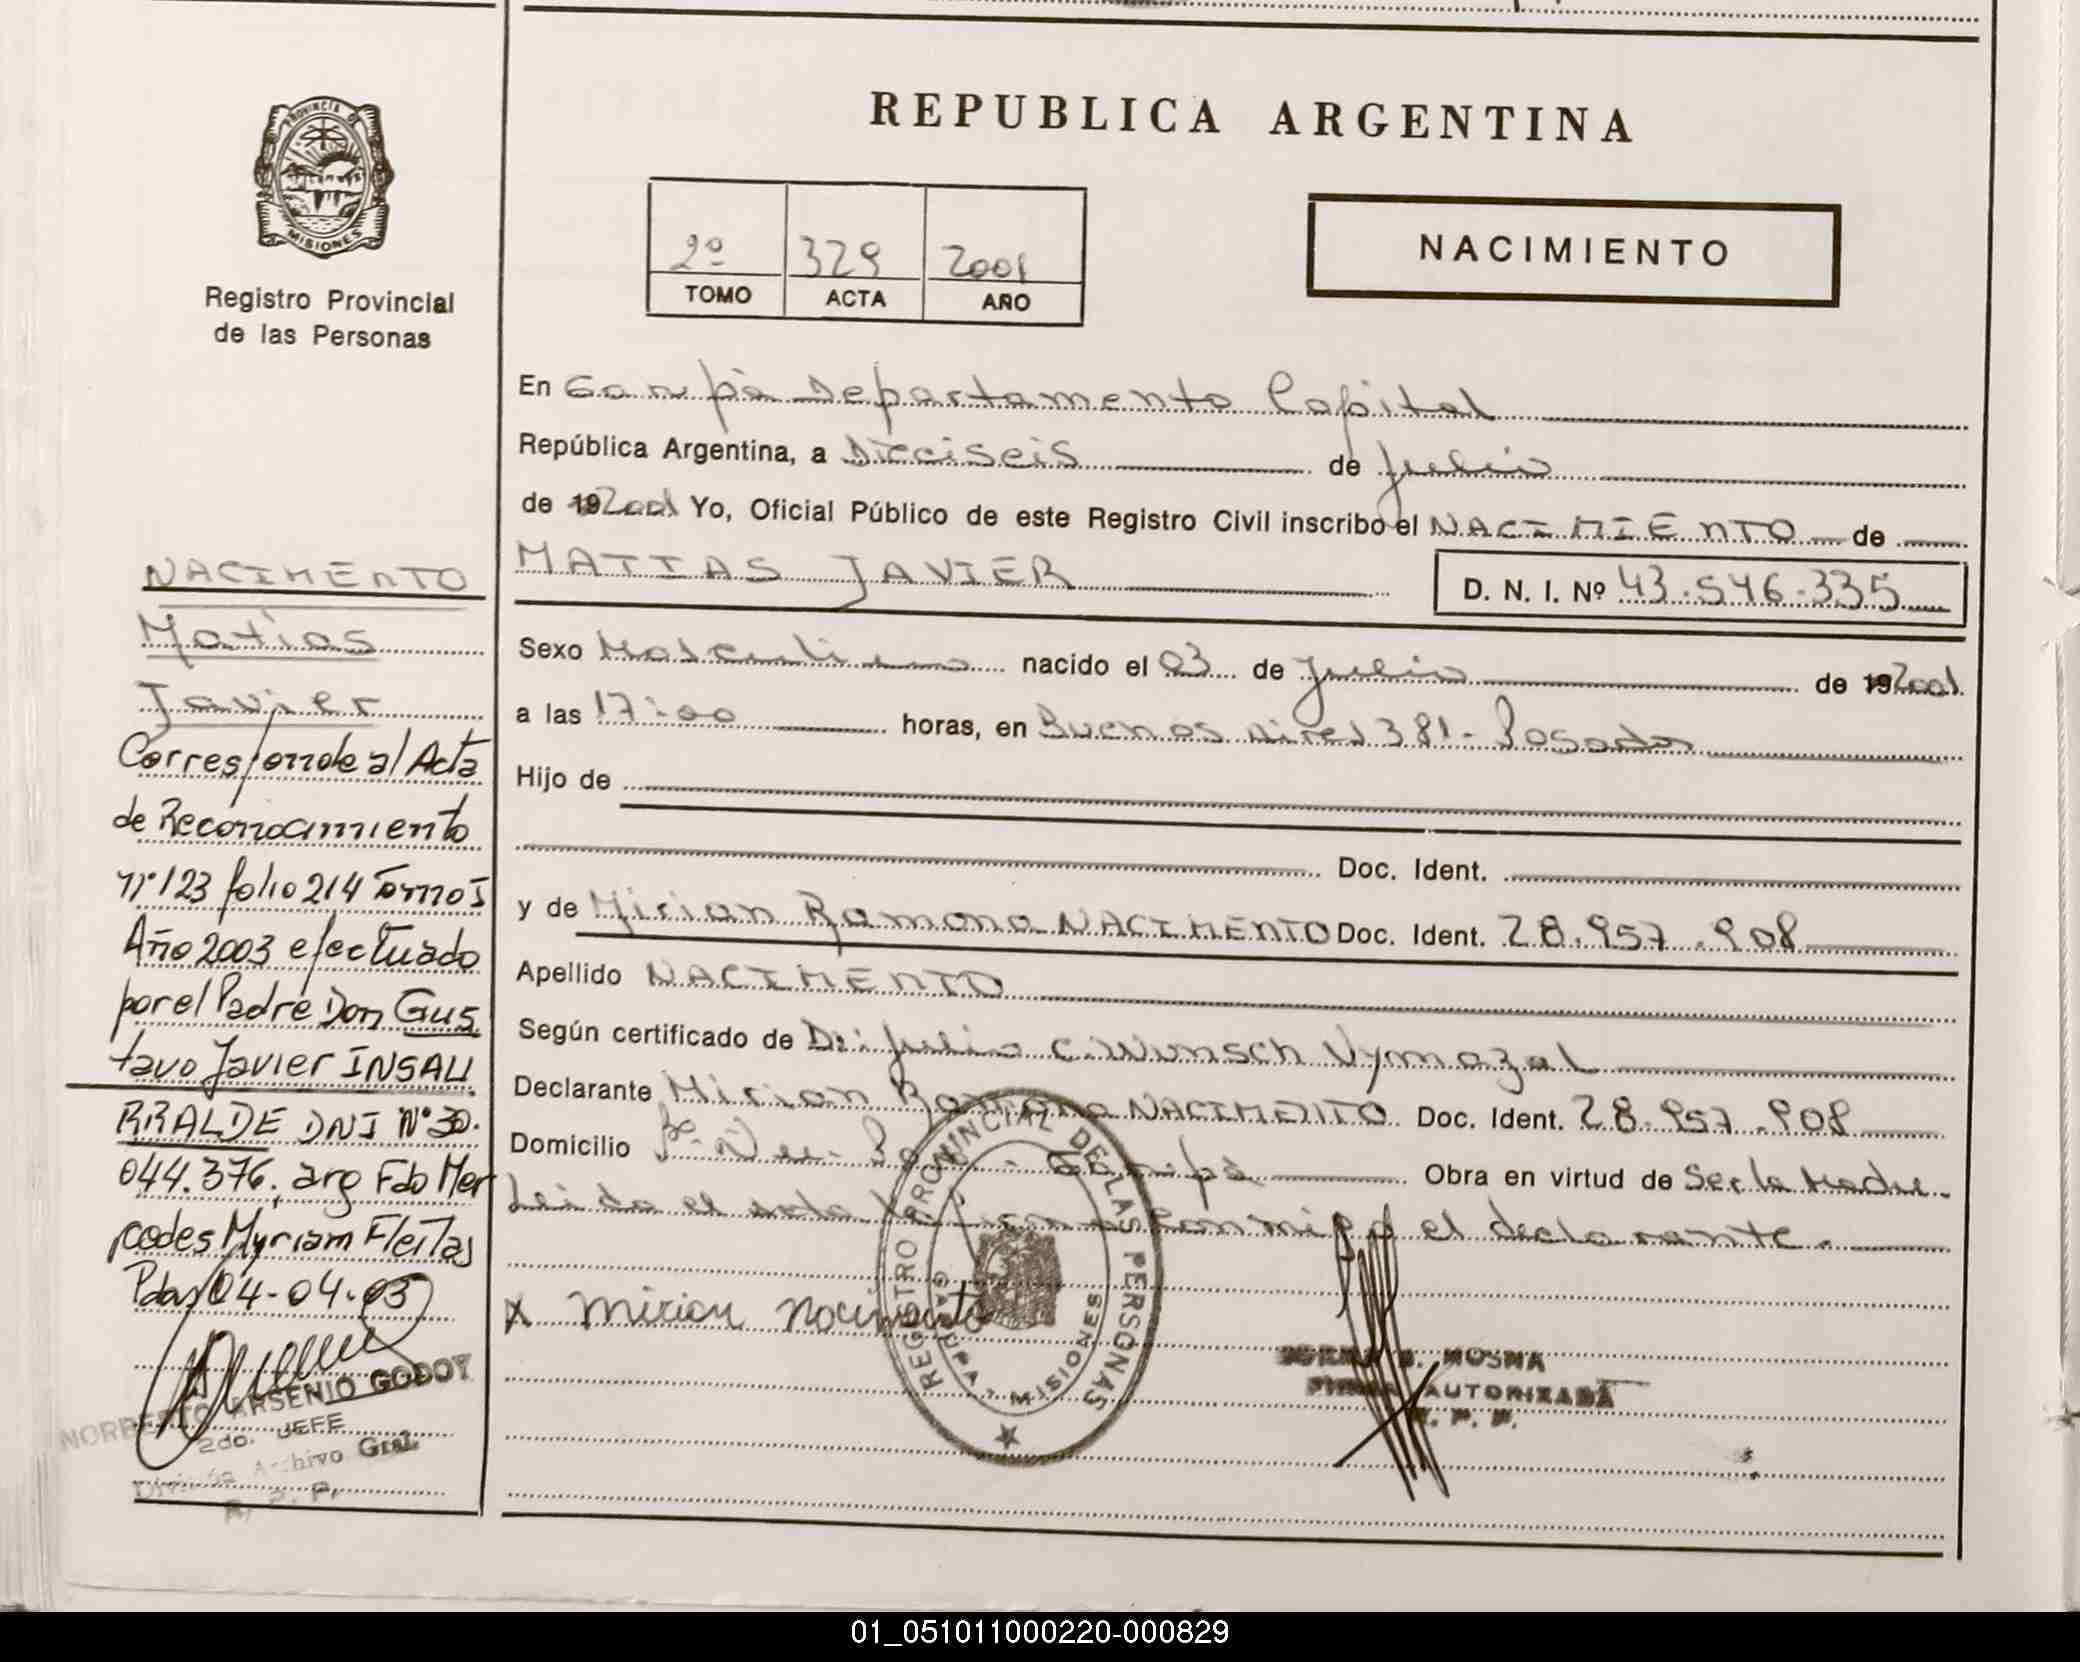 REPUBLICA ARGENTINA
PROVINCIA DE
MISIONES
Registro Provincial
de las Personas
2º 329 2001
TOMO ACTA AÑO
NACIMIENTO
En Garupá Departamento Capital
República Argentina, a Dieciseis de Julio
de 192001 Yo, Oficial Público de este Registro Civil inscribo el NACIMIENTO de
MATIAS JAVIER D. N. I. Nº 43.546.335
Sexo Masculino nacido el 03 de Julio de 192001
a las 17:00 horas, en Buenos Aires 381 - Posadas
Hijo de
Doc. Ident.
y de Mirian Ramona NACIMENTO Doc. Ident. 28.957.908
Apellido NACIMENTO
Según certificado de Dr: Julio C. Wunsch Vymazal
Declarante Mirian Ramona NACIMENTO Doc. Ident. 28.957.908
Domicilio Garupá Obra en virtud de Ser la Madre.
Leida el acta la firma conmigo el declarante.
X Mirian Nacimento
REGISTRO PROVINCIAL DE LAS PERSONAS
GARUPA MISIONES
MOSNA
FIRMA AUTORIZADA
R. P. P.
NACIMENTO
Matias
Javier
Corresponde al Acta
de Reconocimiento
nº 123 folio 214 Tomo I
Año 2003 efectuado
por el Padre Don Gus
tavo Javier INSAU
RRALDE DNI Nº 30.
044.376, arg Fdo Mer
cedes Myriam Fleitas
Pdas 04-04-03
NORBERTO ARSENIO GODOY
2do. JEFE
División Archivo Gral.
R. P. P.
01_051011000220-000829